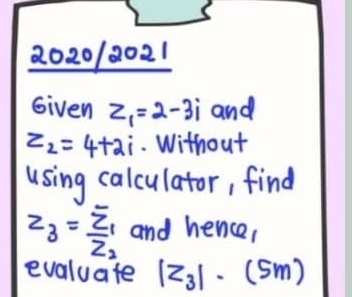 2020/2021
Given z₁=2-3i and
z₂= 4+2i. Without
using calculator, find
z₃ = z̄₁/z₂ and hence,
evaluate |z₃|. (5m)